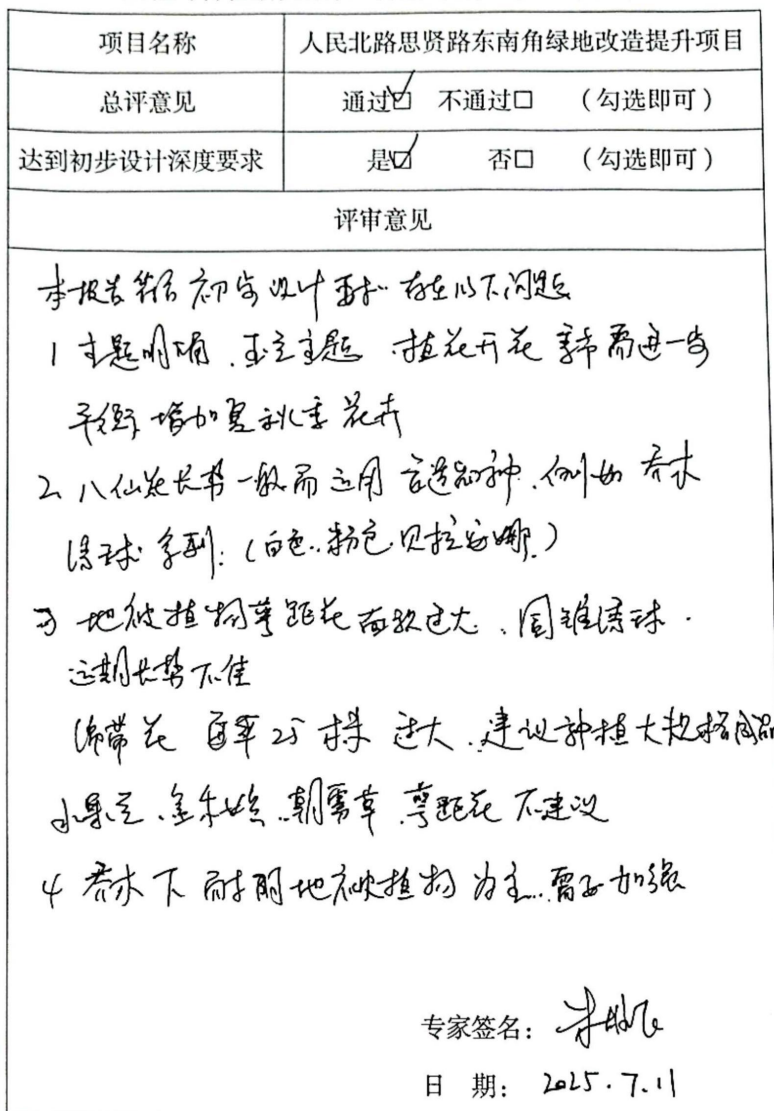 项目名称 人民北路思贤路东南角绿地改造提升项目
总评意见 通过☑ 不通过□ （勾选即可）
达到初步设计深度要求 是☑ 否□ （勾选即可）
评审意见
本报告符合初步设计要求 存在以下问题
1 主题明确、主题、植花开花季节需进一步
平衡 增加夏秋季花卉
2、八仙花长势一般需运用 品种、例如 乔木
绣球系列：（白色、粉色、贝拉安娜）
3 地被植物萼距花面积过大、圆锥绣球、
近期长势不佳
锦带花 密率25株 过大、建议种植大规格
朝雾草、萼距花 不建议
4 乔木下 耐阴地被植物为主、需要加强
专家签名：
日 期： 2025.7.11